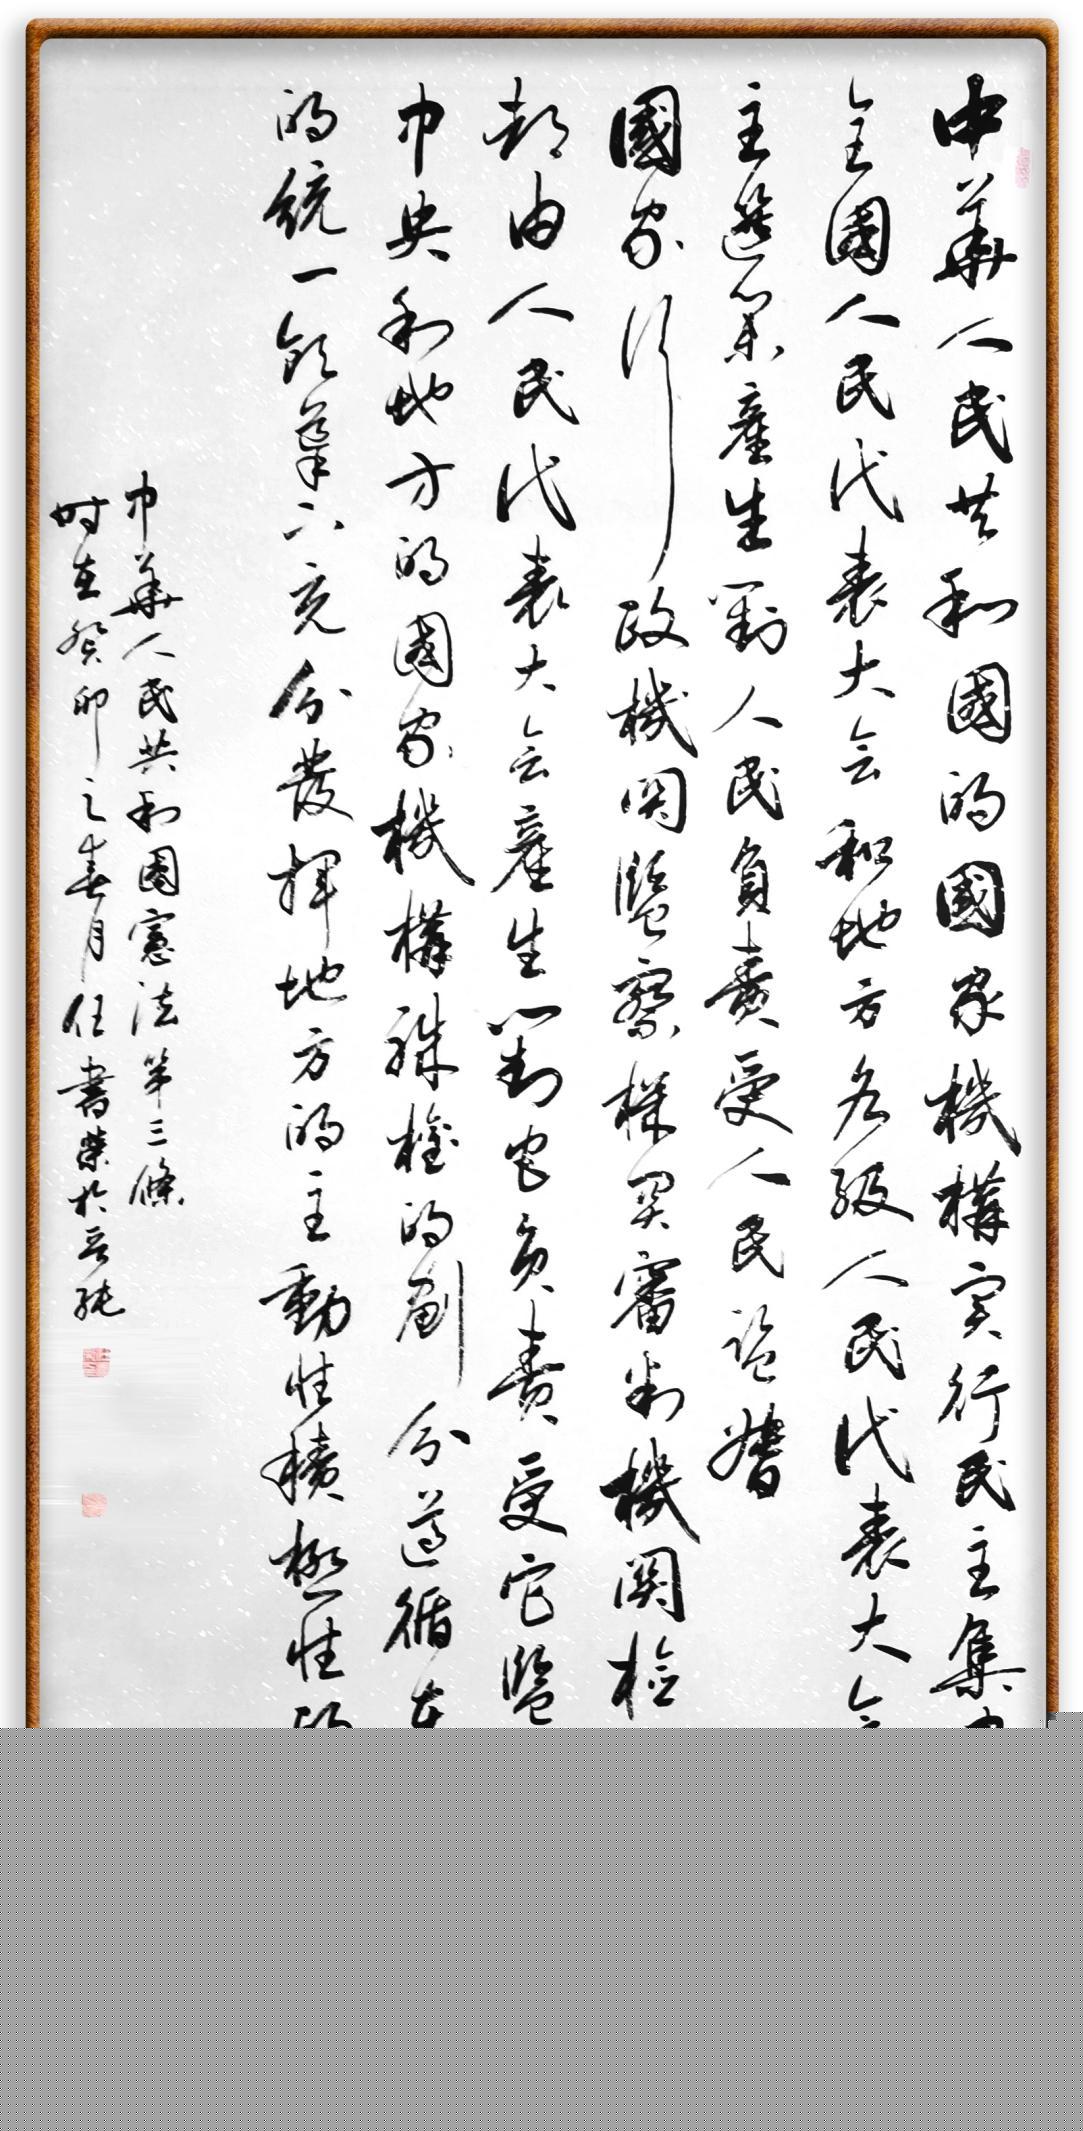 中華人民共和國的國家機構实行民主集中
全國人民代表大会和地方各级人民代表大会
主選舉産生對人民負責受人民监督
國家行政機関監察機関審判機関检
都由人民代表大会産生對它负責受它監
中央和地方的國家機構職權的劃分遵循在
的統一领導下充分發揮地方的主動性積極性的
中華人民共和國憲法第三條
时在癸卯之春月任書榮於